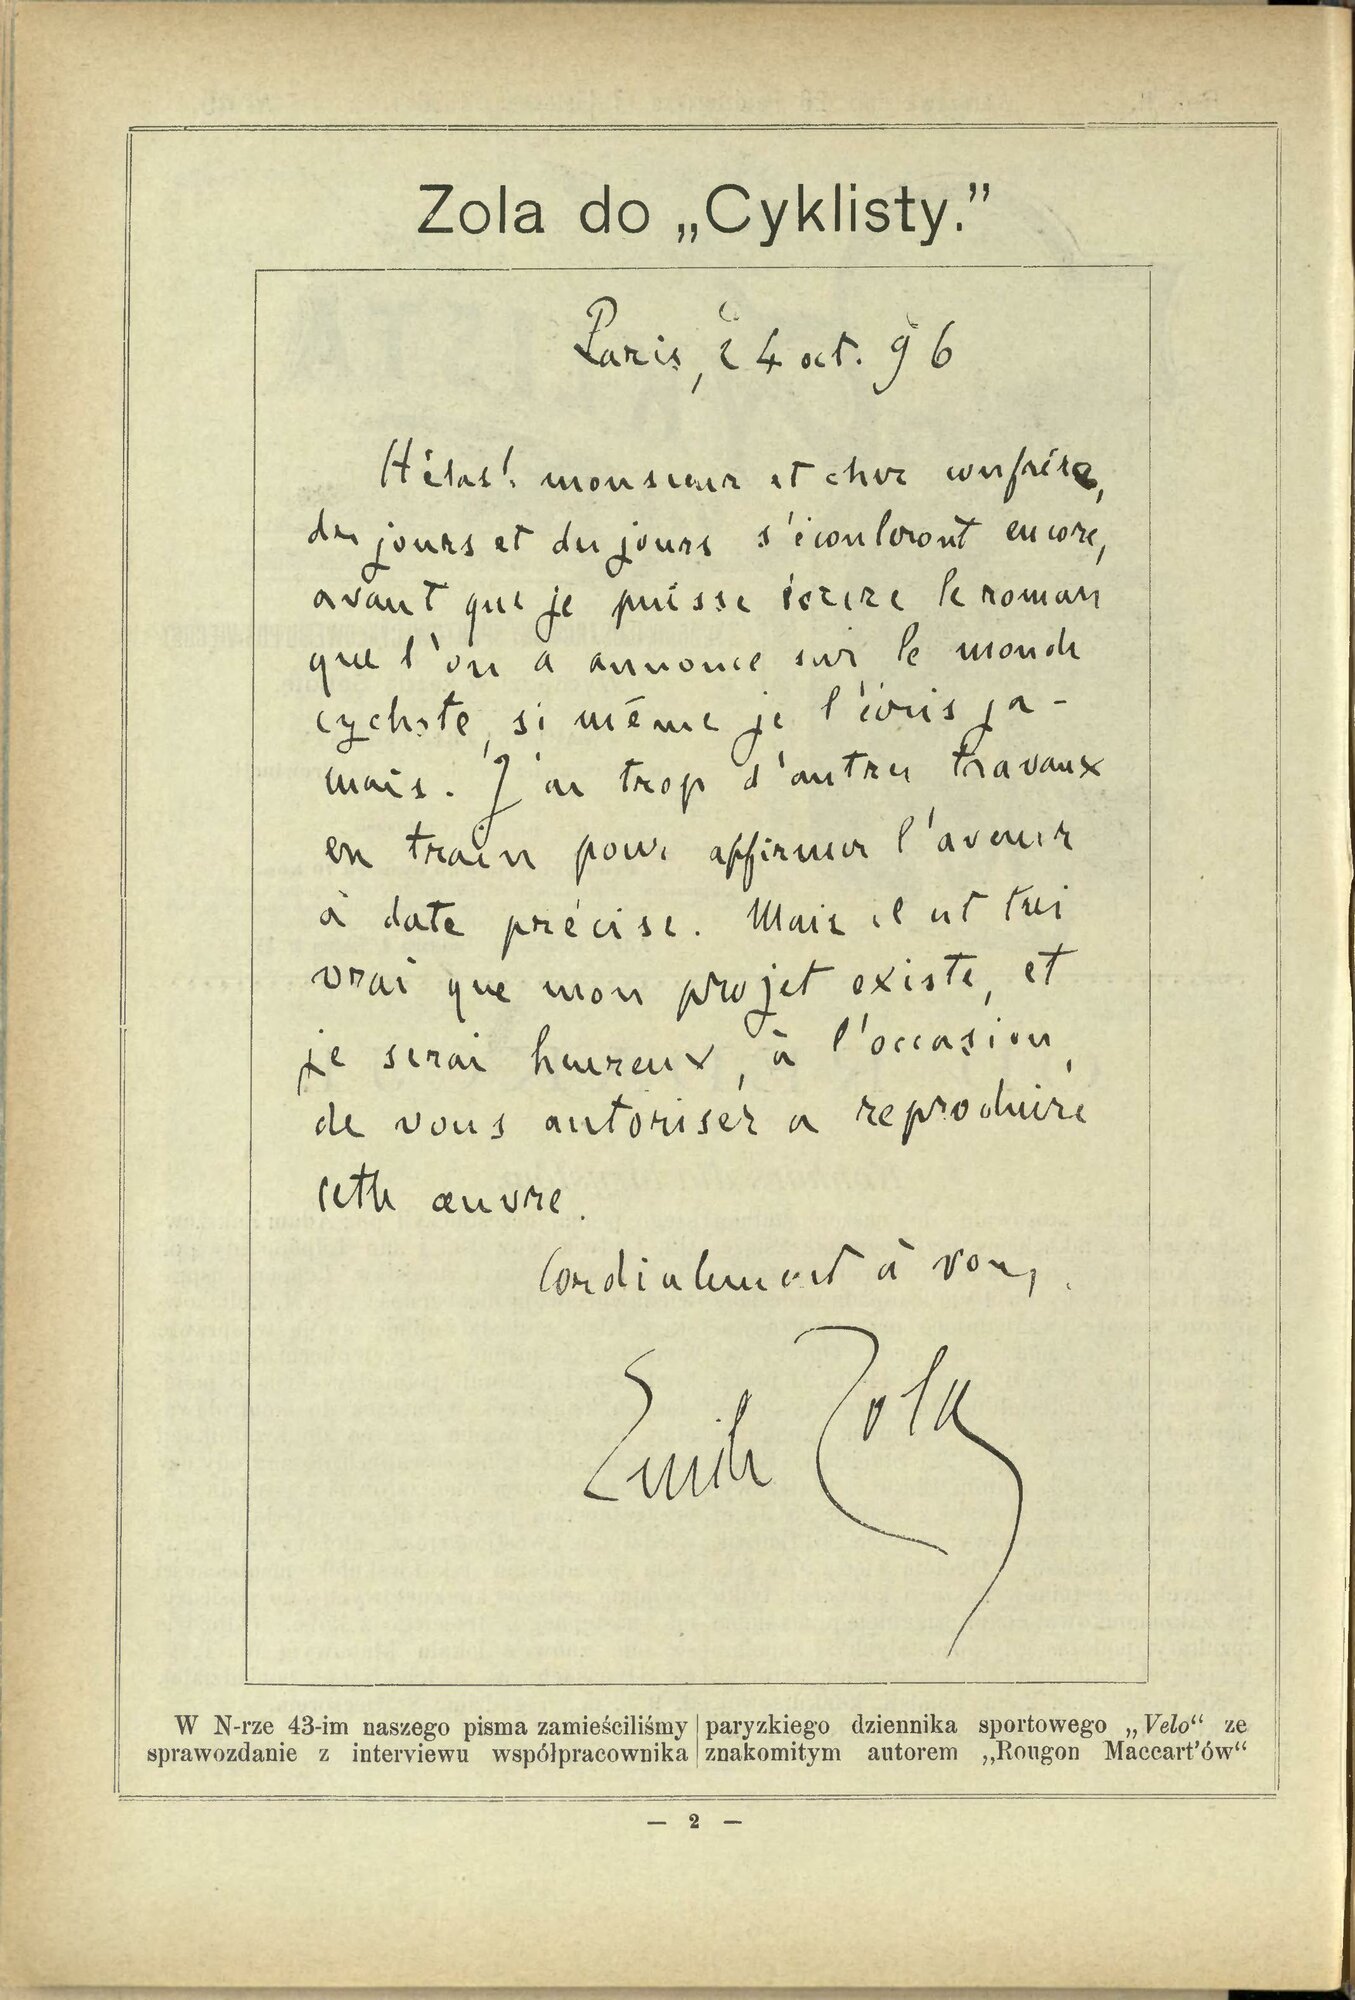 Zola do „Cyklisty.”
Paris, 24 oct. 96
Hélas! monsieur et cher confrère,
des jours et des jours s'écouleront encore,
avant que je puisse écrire le roman
que l'on a annoncé sur le monde
cycliste, si même je l'écris ja-
mais. J'ai trop d'autres travaux
en train pour affirmer l'avenir
à date précise. Mais il est très
vrai que mon projet existe, et
je serai heureux, à l'occasion,
de vous autoriser à reproduire
cette œuvre.
Cordialement à vous,
Emile Zola
W N-rze 43-im naszego pisma zamieściliśmy
sprawozdanie z interviewu współpracownika
paryzkiego dziennika sportowego „Velo“ ze
znakomitym autorem „Rougon Maccart'ów“
— 2 —